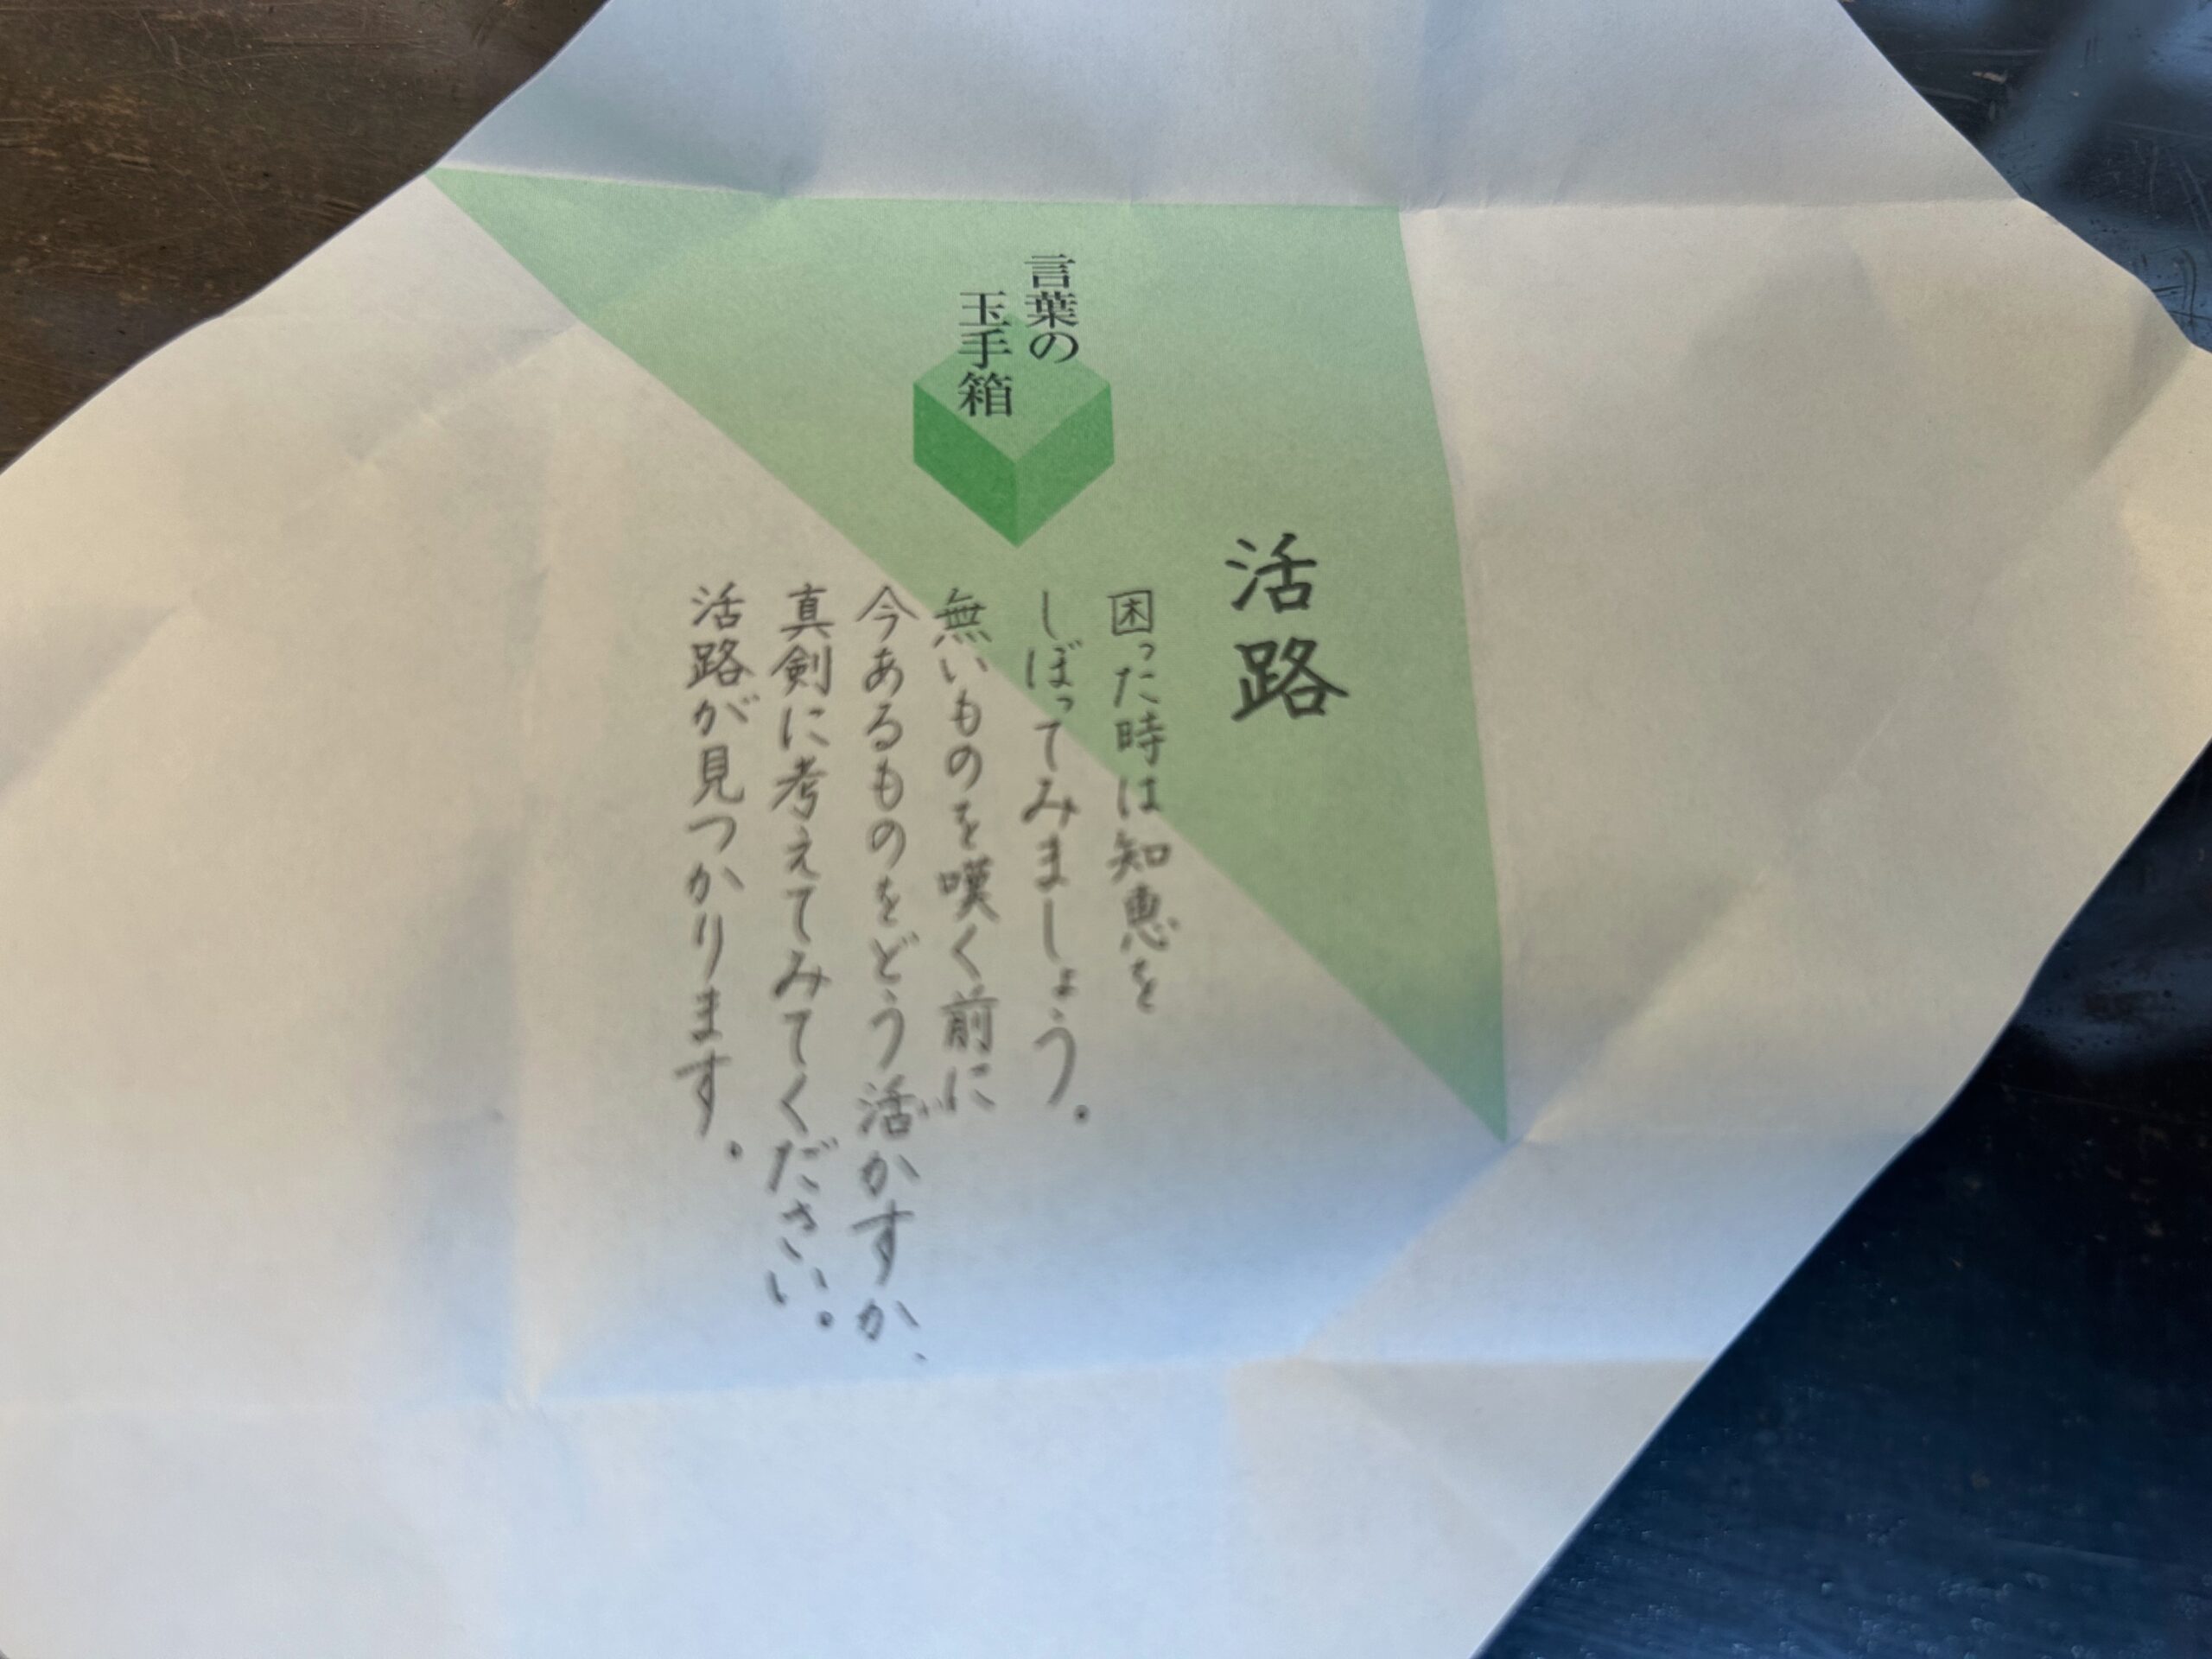 言葉の
玉手箱
活路
困った時は知恵を
しぼってみましょう。
無いものを嘆く前に
今あるものをどう活かすか、
い
真剣に考えてみてください。
活路が見つかります。